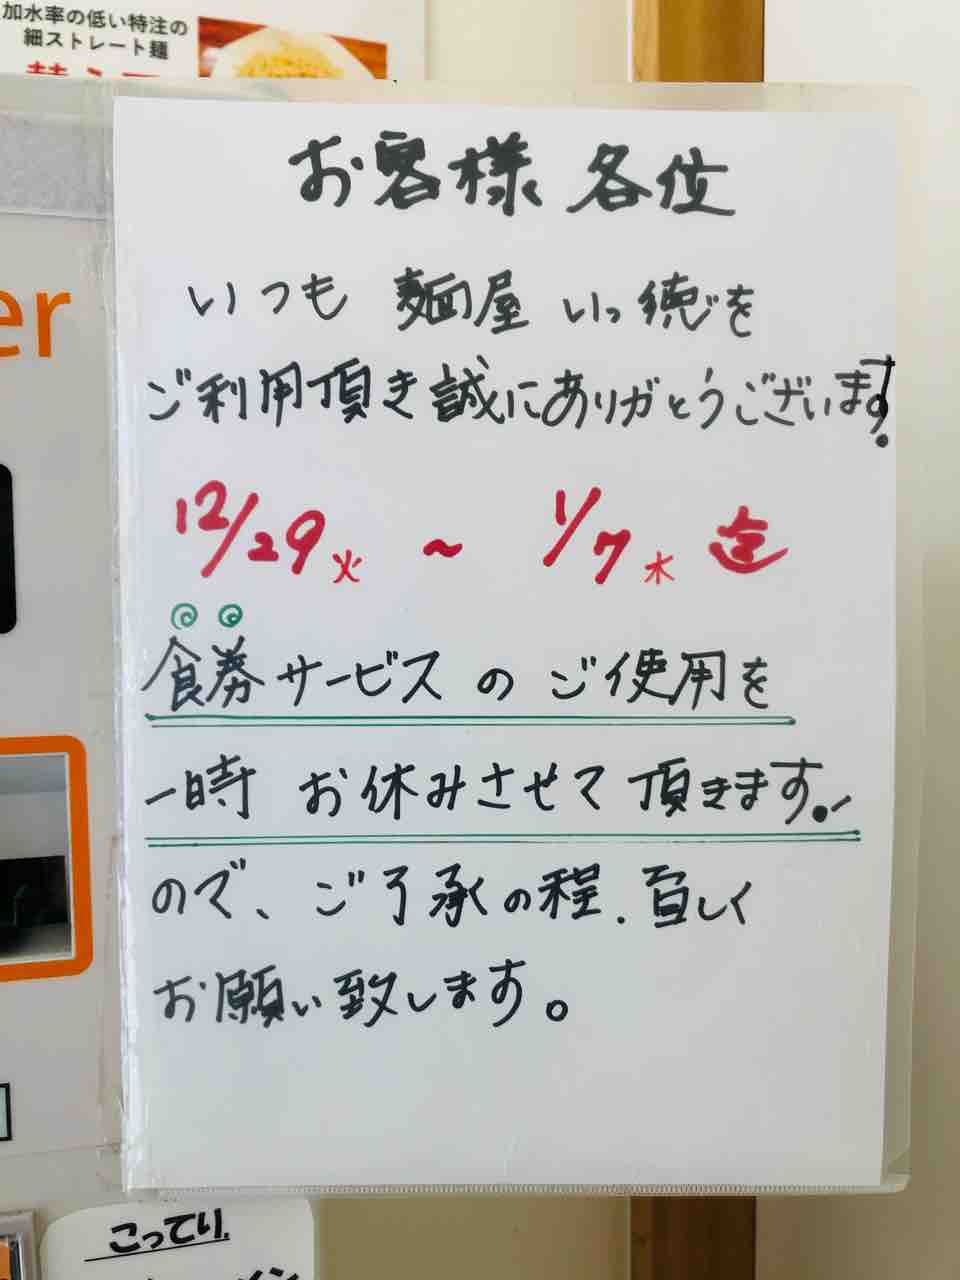 加水率の低い特注の
細ストレート麺
er
お客様 各位
いつも 麺屋 いっ徳を
ご利用頂き誠にありがとうございます!
12/29火 ~ 1/7木 迄
食券サービス の ご使用を
一時 お休みさせて 頂きます。
ので、ご了承の程、宜しく
お願い致します。
こってり